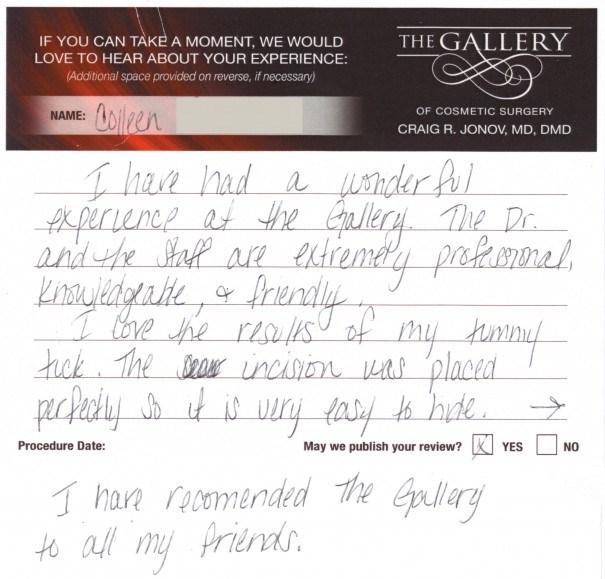 IF YOU CAN TAKE A MOMENT, WE WOULD
LOVE TO HEAR ABOUT YOUR EXPERIENCE:
(Additional space provided on reverse, if necessary)
NAME: Colleen
THE GALLERY
OF COSMETIC SURGERY
CRAIG R. JONOV, MD, DMD
I have had a wonderful
experience at the Gallery. The Dr.
and the Staff are extremely professional,
knowledgeable, & friendly.
I love the results of my tummy
tuck. The incision was placed
perfectly so it is very easy to hide. →
Procedure Date:
May we publish your review? X YES NO
I have recomended The Gallery
to all my friends.